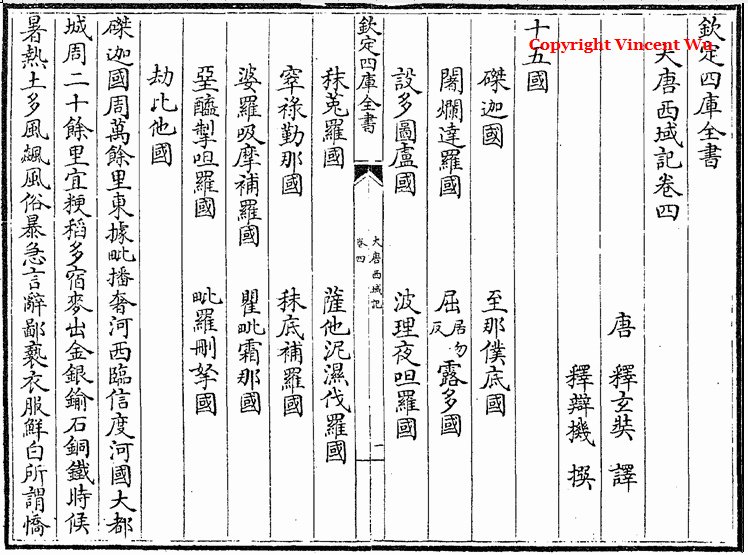 Copyright Vincent Wu
欽定四庫全書
大唐西域記卷四
唐 釋玄奘 譯
釋辯機 撰
十五國
磔迦國 至那僕底國
闍爛達羅國 屈居勿反露多國
設多圖盧國 波理夜呾羅國
欽定四庫全書 大唐西域記卷四 一
秣菟羅國 薩他泥濕伐羅國
窣祿勤那國 秣底補羅國
婆羅吸摩補羅國 瞿毗霜那國
堊醯掣呾羅國 毗羅刪拏國
劫比他國
磔迦國周萬餘里東據毗播奢河西臨信度河國大都
城周二十餘里宜粳稻多宿麥出金銀鍮石銅鐵時候
暑熱土多風飈風俗暴急言辭鄙褻衣服鮮白所謂憍